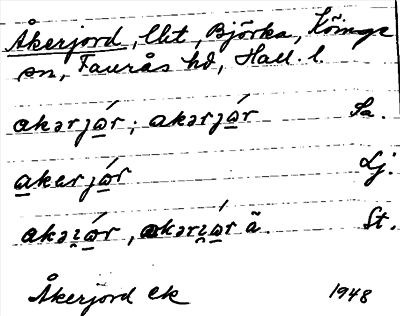 Åkerjord, Uit, Björka, Köinge
sn, Faurås hd, Hall. l.
akərjɷ́r; akərjɷ́r Sa.
akerjɷ́r Lj.
akəi̯ɷ́r, akəri̯ɷ́r ä. St.
Åkerjord ek 1948